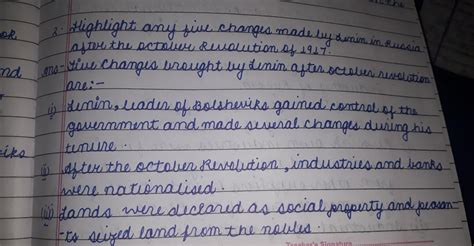 in the
2- Highlight any five changes made by Lenin in Russia
after the october Revolution of 1917.
ans- Five Changes brought by Lenin after october revolution
are:-
(i) Lenin, leader of Bolsheviks gained control of the
government and made several changes during his
tenure.
(ii) After the october Revolution, industries and banks
were nationalised.
(iii) Lands were declared as social property and peasan-
-ts seized land from the nobles.
Teacher's Signature